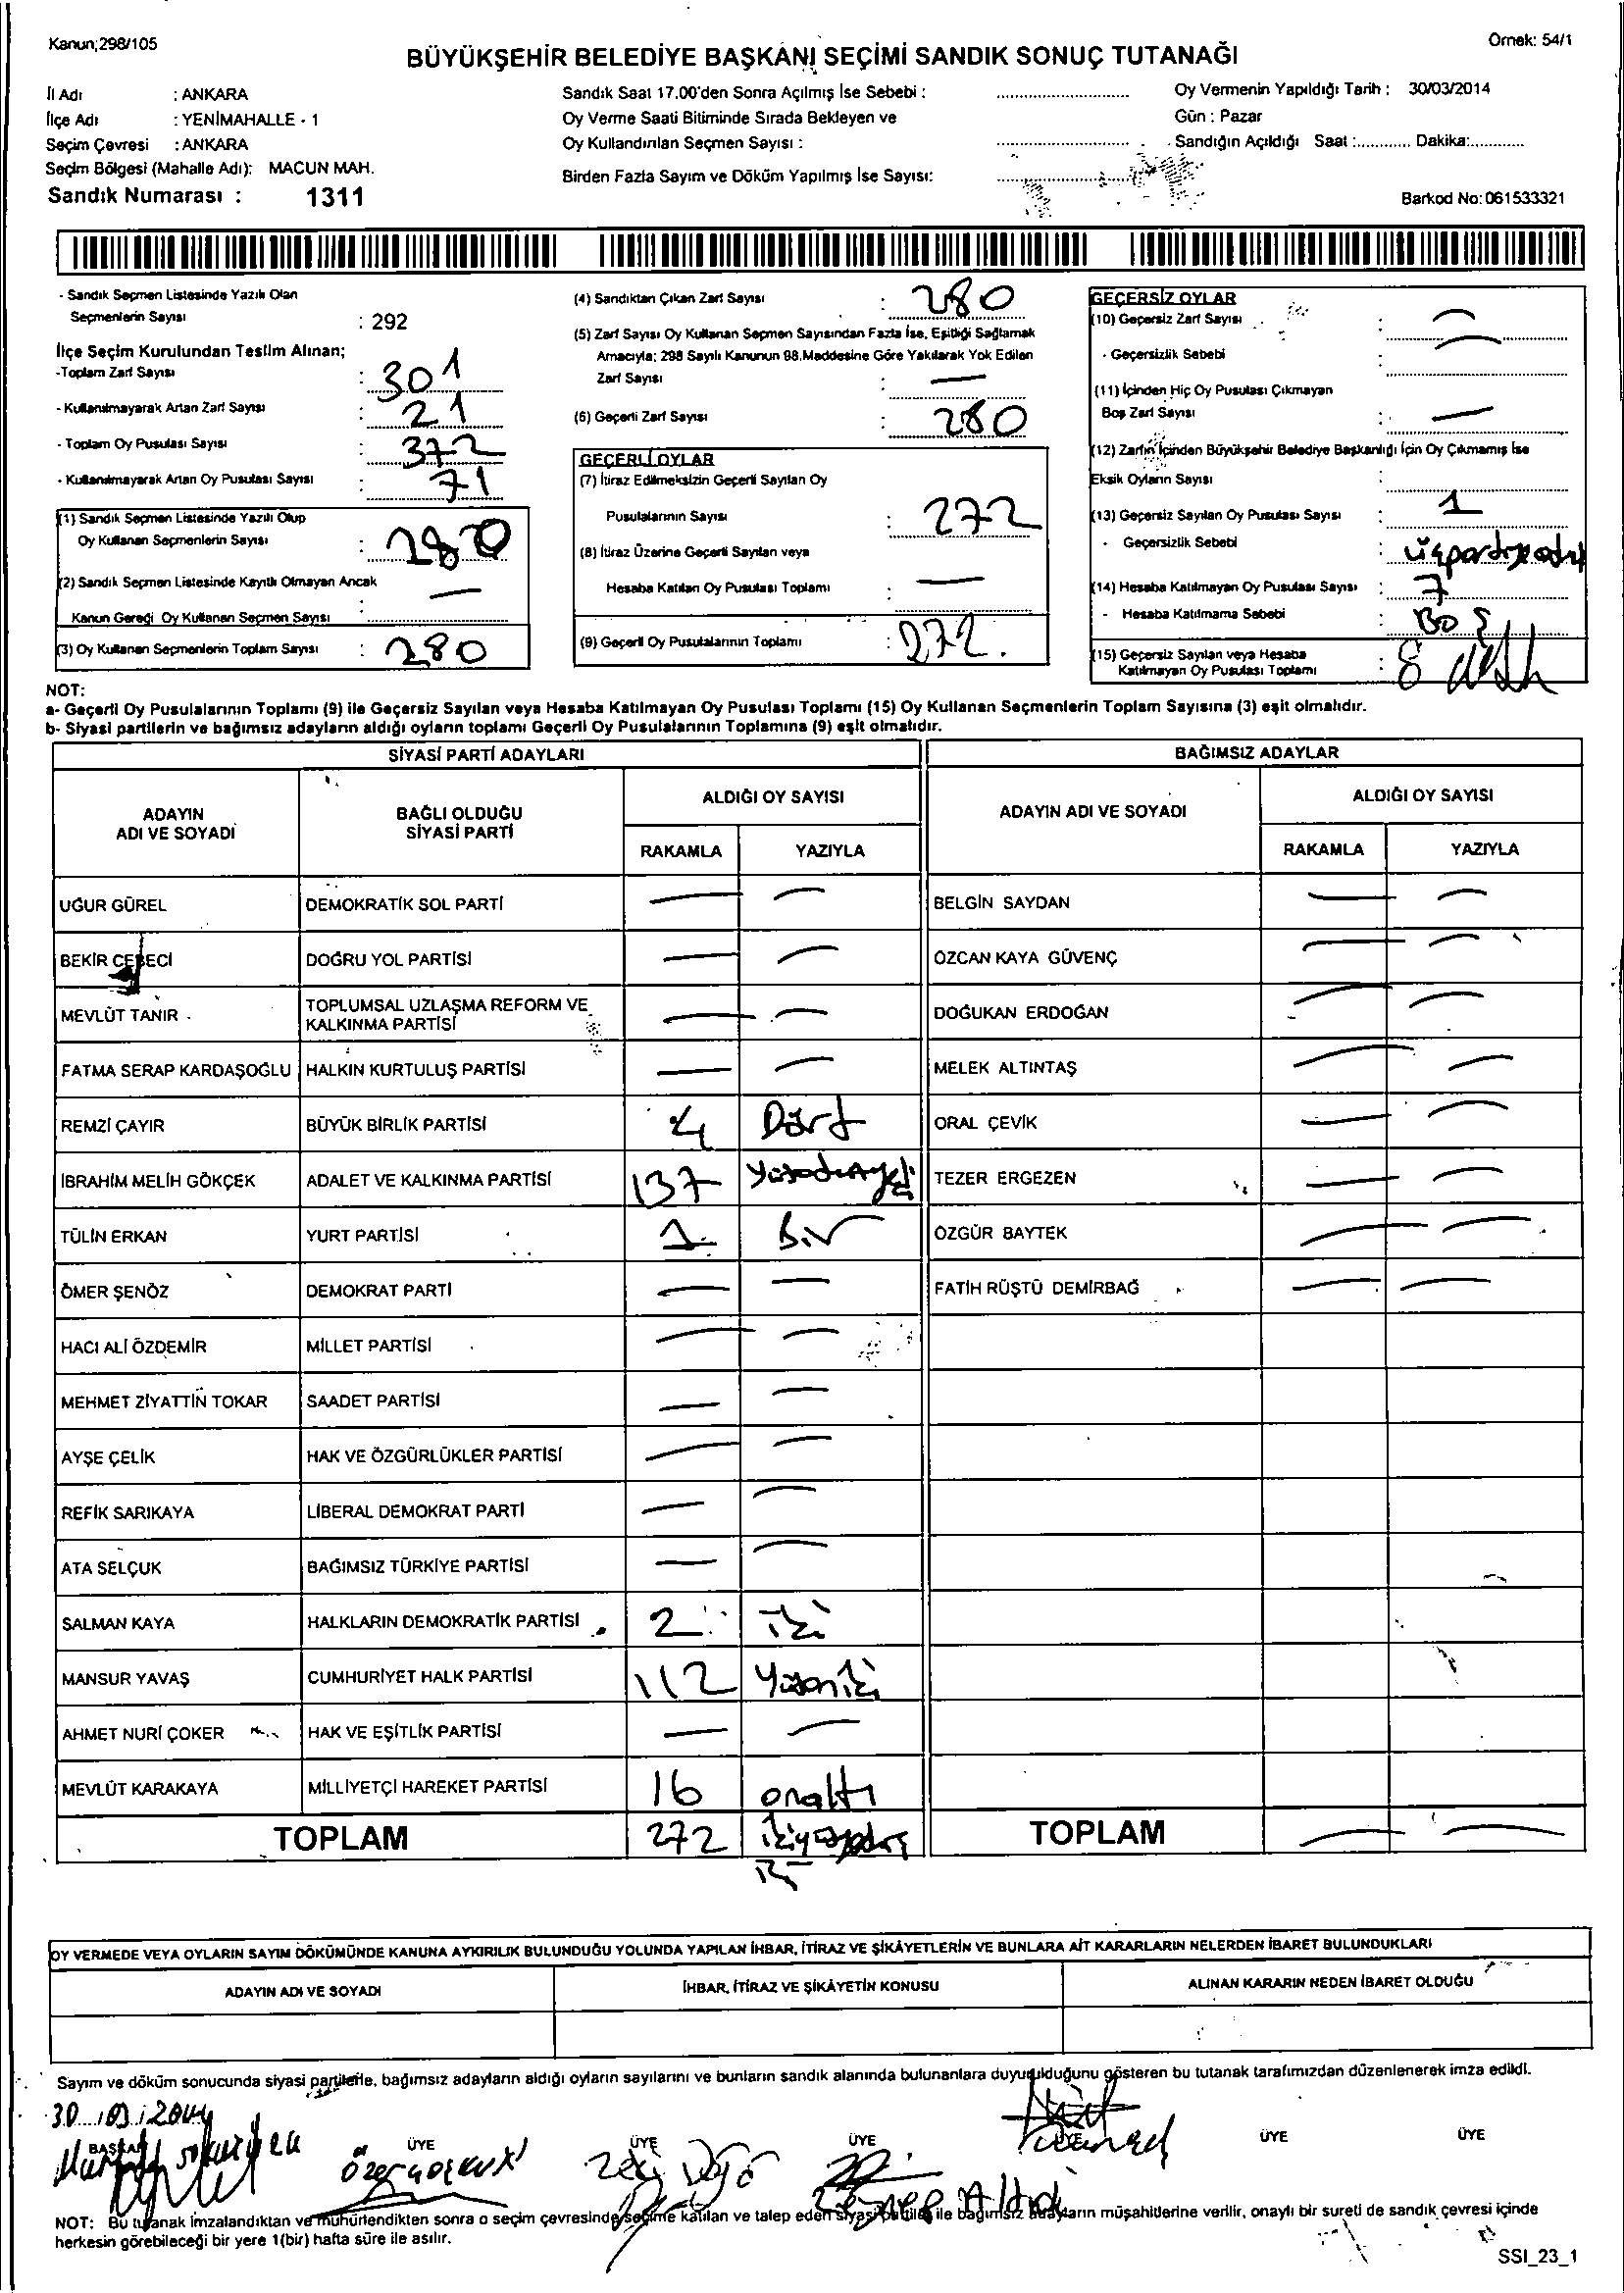 Kanun;298/105
Örnek: 54/1
BÜYÜKŞEHİR BELEDİYE BAŞKANI SEÇİMİ SANDIK SONUÇ TUTANAĞI
İl Adı : ANKARA
İlçe Adı : YENİMAHALLE - 1
Seçim Çevresi : ANKARA
Seçim Bölgesi (Mahalle Adı): MACUN MAH.
Sandık Numarası : 1311
Sandık Saat 17.00'den Sonra Açılmış İse Sebebi :
Oy Verme Saati Bitiminde Sırada Bekleyen ve
Oy Kullandırılan Seçmen Sayısı :
Birden Fazla Sayım ve Döküm Yapılmış İse Sayısı:
Oy Vermenin Yapıldığı Tarih : 30/03/2014
Gün : Pazar
Sandığın Açıldığı Saat :............ Dakika:............
Barkod No: 061533321
- Sandık Seçmen Listesinde Yazılı Olan
Seçmenlerin Sayısı : 292
İlçe Seçim Kurulundan Teslim Alınan;
-Toplam Zarf Sayısı : 301
- Kullanılmayarak Artan Zarf Sayısı : 21
- Toplam Oy Pusulası Sayısı : 372
- Kullanılmayarak Artan Oy Pusulası Sayısı : 71
(1) Sandık Seçmen Listesinde Yazılı Olup
Oy Kullanan Seçmenlerin Sayısı : 280
(2) Sandık Seçmen Listesinde Kayıtlı Olmayan Ancak
Kanun Gereği Oy Kullanan Seçmen Sayısı : —
(3) Oy Kullanan Seçmenlerin Toplam Sayısı : 280
(4) Sandıktan Çıkan Zarf Sayısı : 280
(5) Zarf Sayısı Oy Kullanan Seçmen Sayısından Fazla İse, Eşitliği Sağlamak
Amacıyla; 298 Sayılı Kanunun 98.Maddesine Göre Yakılarak Yok Edilen
Zarf Sayısı : —
(6) Geçerli Zarf Sayısı : 280
GEÇERLİ OYLAR
(7) İtiraz Edilmeksizin Geçerli Sayılan Oy
Pusulalarının Sayısı : 272
(8) İtiraz Üzerine Geçerli Sayılan veya
Hesaba Katılan Oy Pusulası Toplamı : —
(9) Geçerli Oy Pusulalarının Toplamı : 272.
GEÇERSİZ OYLAR
(10) Geçersiz Zarf Sayısı : —
- Geçersizlik Sebebi : —
(11) İçinden Hiç Oy Pusulası Çıkmayan
Boş Zarf Sayısı : —
(12) Zarfın İçinden Büyükşehir Belediye Başkanlığı İçin Oy Çıkmamış İse
Eksik Oyların Sayısı :
(13) Geçersiz Sayılan Oy Pusulası Sayısı : 1
- Geçersizlik Sebebi :
(14) Hesaba Katılmayan Oy Pusulası Sayısı : 7
- Hesaba Katılmama Sebebi : BOŞ
(15) Geçersiz Sayılan veya Hesaba
Katılmayan Oy Pusulası Toplamı : 8
NOT:
a- Geçerli Oy Pusulalarının Toplamı (9) ile Geçersiz Sayılan veya Hesaba Katılmayan Oy Pusulası Toplamı (15) Oy Kullanan Seçmenlerin Toplam Sayısına (3) eşit olmalıdır.
b- Siyasi partilerin ve bağımsız adayların aldığı oyların toplamı Geçerli Oy Pusulalarının Toplamına (9) eşit olmalıdır.
SİYASİ PARTİ ADAYLARI
ADAYIN ADI VE SOYADI BAĞLI OLDUĞU SİYASİ PARTİ ALDIĞI OY SAYISI RAKAMLA YAZIYLA
UĞUR GÜREL DEMOKRATİK SOL PARTİ — —
BEKİR CEBECİ DOĞRU YOL PARTİSİ — —
MEVLÜT TANIR TOPLUMSAL UZLAŞMA REFORM VE KALKINMA PARTİSİ — —
FATMA SERAP KARDAŞOĞLU HALKIN KURTULUŞ PARTİSİ — —
REMZİ ÇAYIR BÜYÜK BİRLİK PARTİSİ 4 Dört
İBRAHİM MELİH GÖKÇEK ADALET VE KALKINMA PARTİSİ 137
TÜLİN ERKAN YURT PARTİSİ 1 Bir
ÖMER ŞENÖZ DEMOKRAT PARTİ — —
HACI ALİ ÖZDEMİR MİLLET PARTİSİ — —
MEHMET ZİYATTİN TOKAR SAADET PARTİSİ — —
AYŞE ÇELİK HAK VE ÖZGÜRLÜKLER PARTİSİ — —
REFİK SARIKAYA LİBERAL DEMOKRAT PARTİ — —
ATA SELÇUK BAĞIMSIZ TÜRKİYE PARTİSİ — —
SALMAN KAYA HALKLARIN DEMOKRATİK PARTİSİ 2 iki
MANSUR YAVAŞ CUMHURİYET HALK PARTİSİ 112 Yüzoniki
AHMET NURİ ÇOKER HAK VE EŞİTLİK PARTİSİ — —
MEVLÜT KARAKAYA MİLLİYETÇİ HAREKET PARTİSİ 16 onaltı
TOPLAM 272
BAĞIMSIZ ADAYLAR
ADAYIN ADI VE SOYADI ALDIĞI OY SAYISI RAKAMLA YAZIYLA
BELGİN SAYDAN — —
ÖZCAN KAYA GÜVENÇ — —
DOĞUKAN ERDOĞAN — —
MELEK ALTINTAŞ — —
ORAL ÇEVİK — —
TEZER ERGEZEN — —
ÖZGÜR BAYTEK — —
FATİH RÜŞTÜ DEMİRBAĞ — —
TOPLAM — —
OY VERMEDE VEYA OYLARIN SAYIM DÖKÜMÜNDE KANUNA AYKIRILIK BULUNDUĞU YOLUNDA YAPILAN İHBAR, İTİRAZ VE ŞİKÂYETLERİN VE BUNLARA AİT KARARLARIN NELERDEN İBARET BULUNDUKLARI
ADAYIN ADI VE SOYADI İHBAR, İTİRAZ VE ŞİKÂYETİN KONUSU ALINAN KARARIN NEDEN İBARET OLDUĞU
Sayım ve döküm sonucunda siyasi partilerle, bağımsız adayların aldığı oyların sayılarını ve bunların sandık alanında bulunanlara duyurulduğunu gösteren bu tutanak tarafımızdan düzenlenerek imza edildi.
30/03/2014
BAŞKAN ÜYE ÜYE ÜYE ÜYE ÜYE ÜYE
Zeynep Altıd
NOT: Bu tutanak imzalandıktan ve mühürlendikten sonra o seçim çevresinde seçime katılan ve talep eden siyasi partiler ile bağımsız adayların müşahitlerine verilir, onaylı bir sureti de sandık çevresi içinde
herkesin görebileceği bir yere 1(bir) hafta süre ile asılır.
SSI_23_1